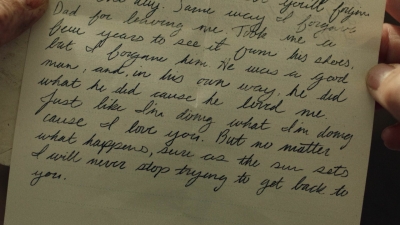 day. Same way I forgave
Dad for leaving me. Took me a
few years to see it from his shoes,
but I forgave him. He was a good
man, and in his own way, he did
what he did cause he loved me.
Just like I'm doing what I'm doing
cause I love you. But no matter
what happens, sure as the sun sets
I will never stop trying to get back to
you.